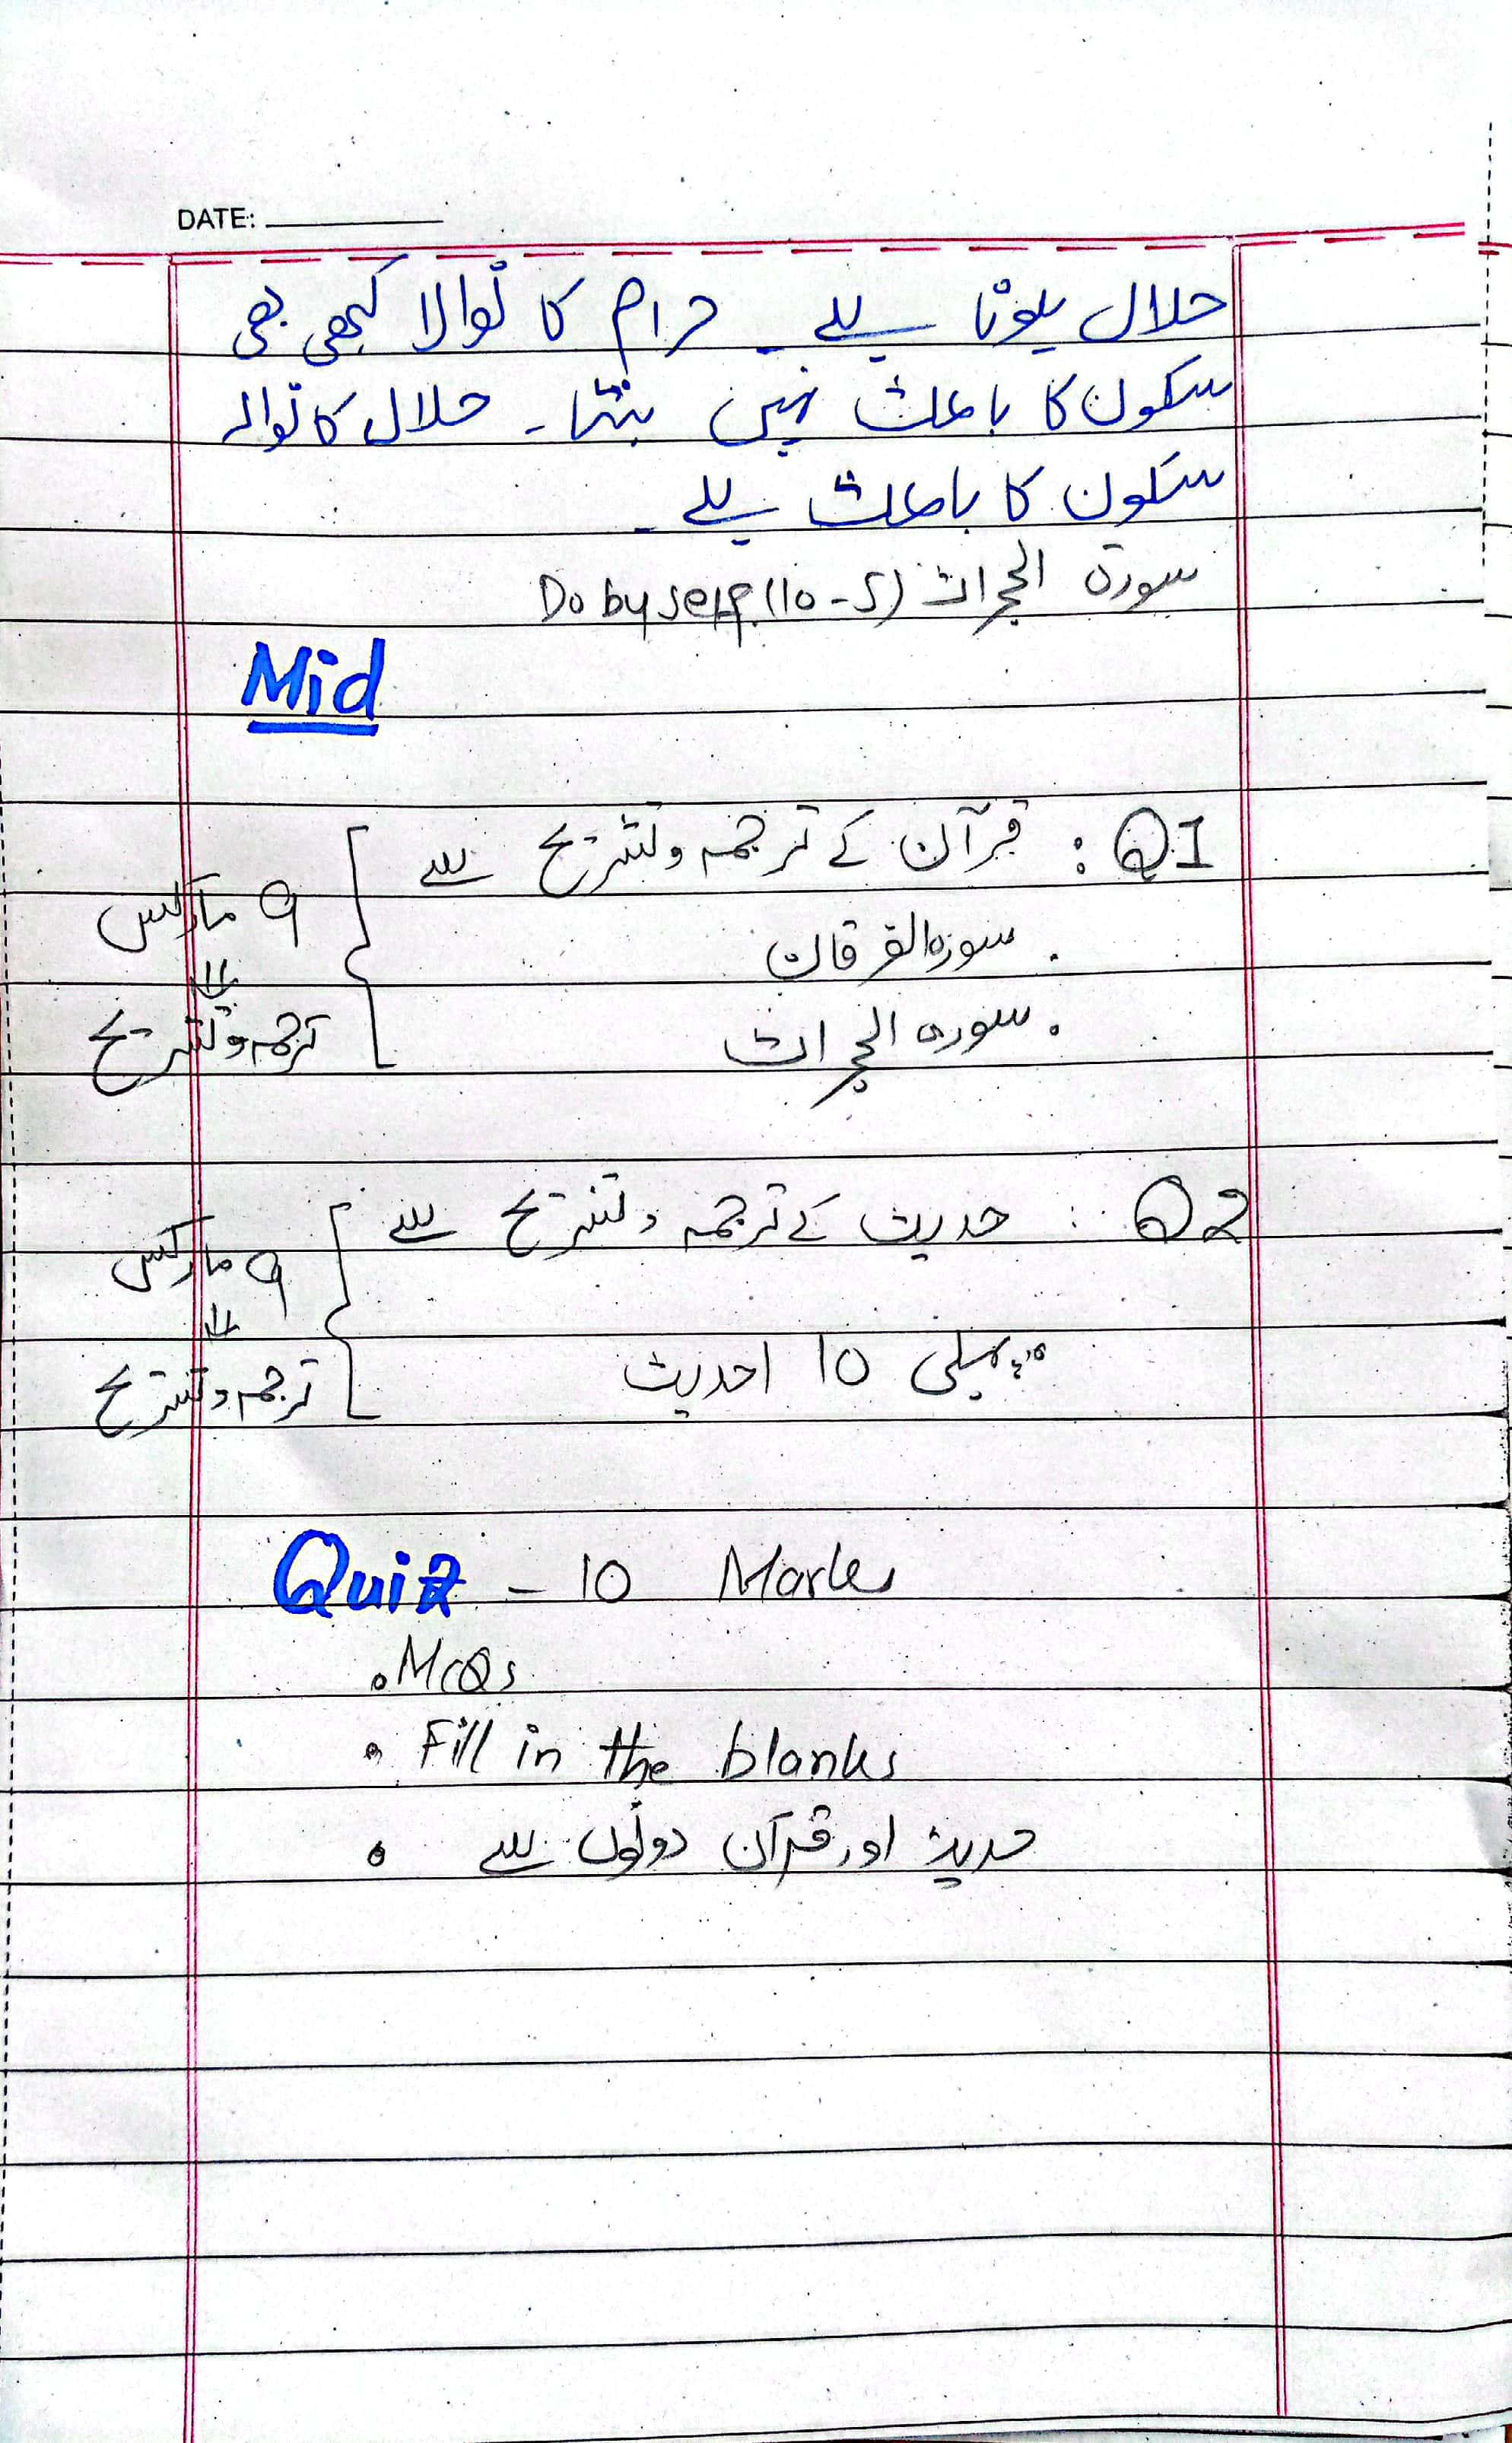 DATE:
حلال ہونا ہے ۔ حرام کا نوالا کبھی بھی
سکون کا باعث نہیں بنتا ۔ حلال کا نوالہ
سکون کا باعث ہے ۔
سورۃ الحجرات (5-10) Do by self.
Mid
Q1 : قرآن کے ترجمہ و تشریح سے
9 مارکس
. سورہ الفرقان
. سورہ الحجرات
ترجمہ و تشریح
Q2 : حدیث کے ترجمہ و تشریح سے
9 مارکس
پہلی 10 احدیث
ترجمہ و تشریح
Quiz - 10 Marks
• MCQs
• Fill in the blanks
• حدیث اور قرآن دونوں سے